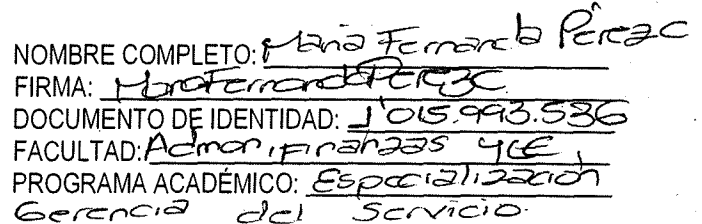 NOMBRE COMPLETO: Maria Fernanda Pérez C
FIRMA: MariaFernandaPerezC.
DOCUMENTO DE IDENTIDAD: 1'015.993.536
FACULTAD: Admon, finanzas y CE,
PROGRAMA ACADÉMICO: Especialización
Gerencia del Servicio.